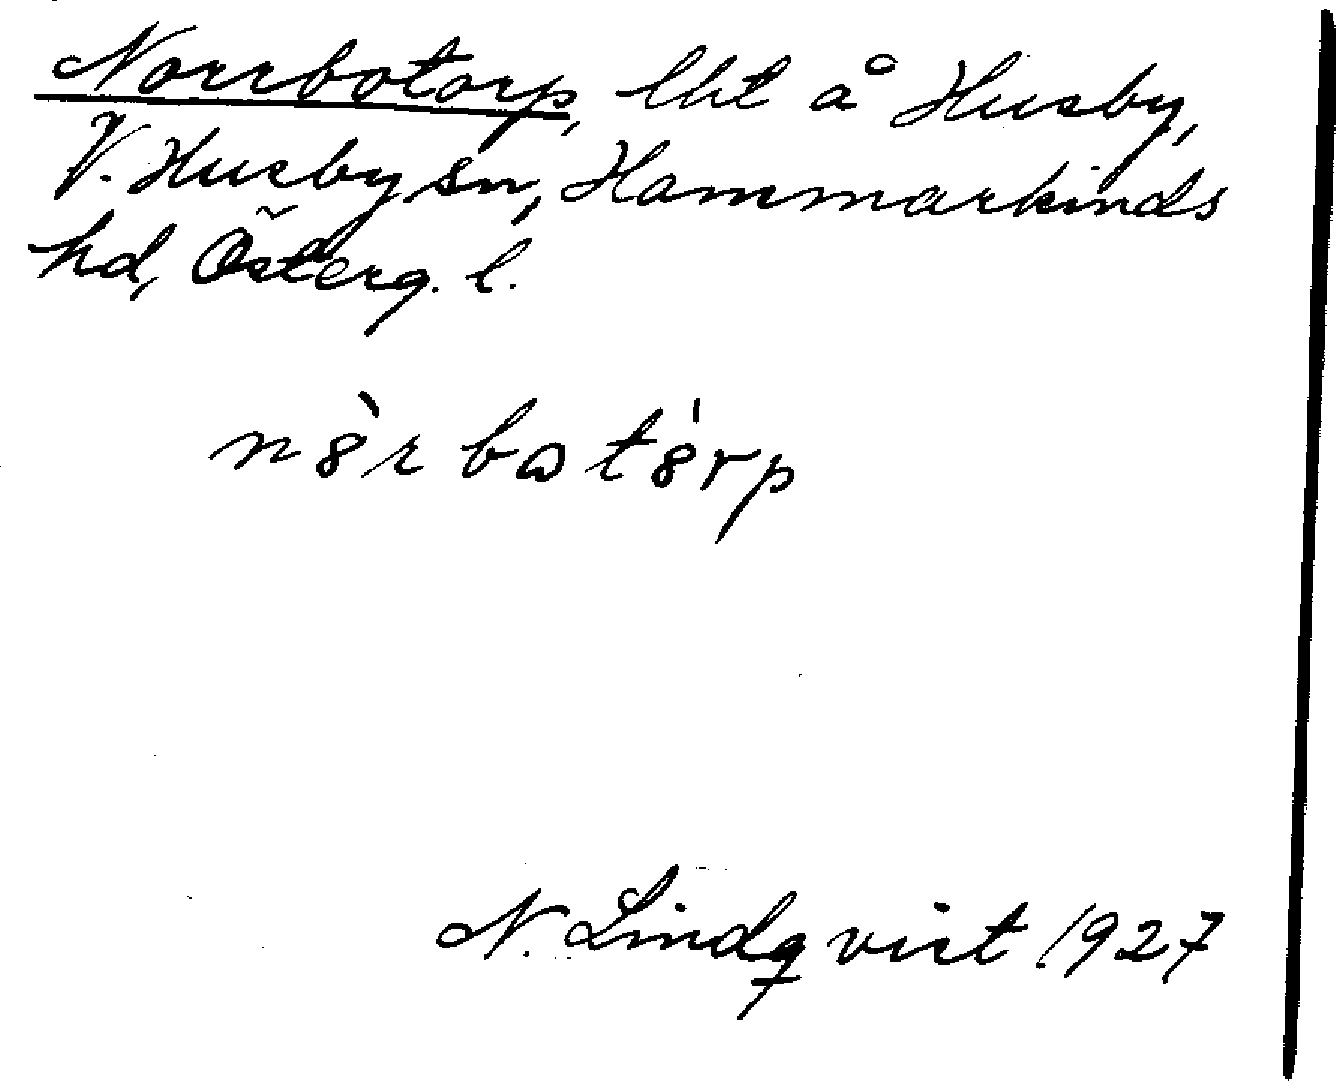 Norrbotorp, lht å Husby,
V. Husby sn, Hammarkinds
hd, Österg. l.
n8̀r bω t8́rp
N. Lindqvist 1927